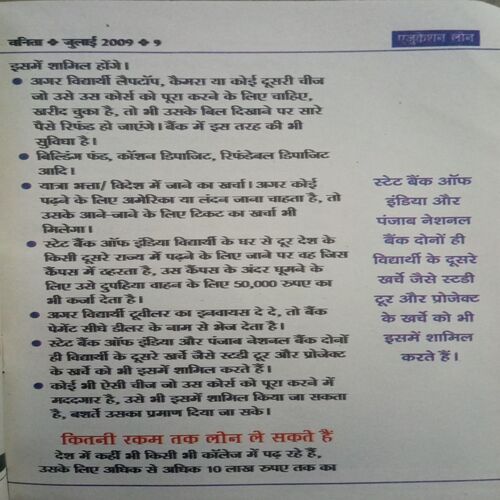 वनिता ❖ जुलाई 2009 ❖ 9
एजुकेशन लोन
इसमें शामिल होंगे।
● अगर विद्यार्थी लैपटॉप, कैमरा या कोई दूसरी चीज
जो उसे उस कोर्स को पूरा करने के लिए चाहिए,
खरीद चुका है, तो भी उसके बिल दिखाने पर सारे
पैसे रिफंड हो जाएंगे। बैंक में इस तरह की भी
सुविधा है।
● बिल्डिंग फंड, कॉशन डिपाजिट, रिफंडेबल डिपाजिट
आदि।
● यात्रा भत्ता/ विदेश में जाने का खर्चा। अगर कोई
पढ़ने के लिए अमेरिका या लंदन जाना चाहता है, तो
उसके आने-जाने के लिए टिकट का खर्चा भी
मिलेगा।
● स्टेट बैंक ऑफ इंडिया विद्यार्थी के घर से दूर देश के
किसी दूसरे राज्य में पढ़ने के लिए जाने पर वह जिस
कैंपस में ठहरता है, उस कैंपस के अंदर घूमने के
लिए उसे दुपहिया वाहन के लिए 50,000 रुपए का
भी कर्जा देता है।
● अगर विद्यार्थी टूवीलर का इनवायस दे दे, तो बैंक
पेमेंट सीधे डीलर के नाम से भेज देता है।
● स्टेट बैंक ऑफ इंडिया और पंजाब नेशनल बैंक दोनों
ही विद्यार्थी के दूसरे खर्चे जैसे स्टडी टूर और प्रोजेक्ट
के खर्चे को भी इसमें शामिल करते हैं।
● कोई भी ऐसी चीज जो उस कोर्स को पूरा करने में
मददगार है, उसे भी इसमें शामिल किया जा सकता
है, बशर्ते उसका प्रमाण दिया जा सके।
कितनी रकम तक लोन ले सकते हैं
देश में कहीं भी किसी भी कॉलेज में पढ़ रहे हैं,
उसके लिए अधिक से अधिक 10 लाख रुपए तक का
स्टेट बैंक ऑफ
इंडिया और
पंजाब नेशनल
बैंक दोनों ही
विद्यार्थी के दूसरे
खर्चे जैसे स्टडी
टूर और प्रोजेक्ट
के खर्चे को भी
इसमें शामिल
करते हैं।